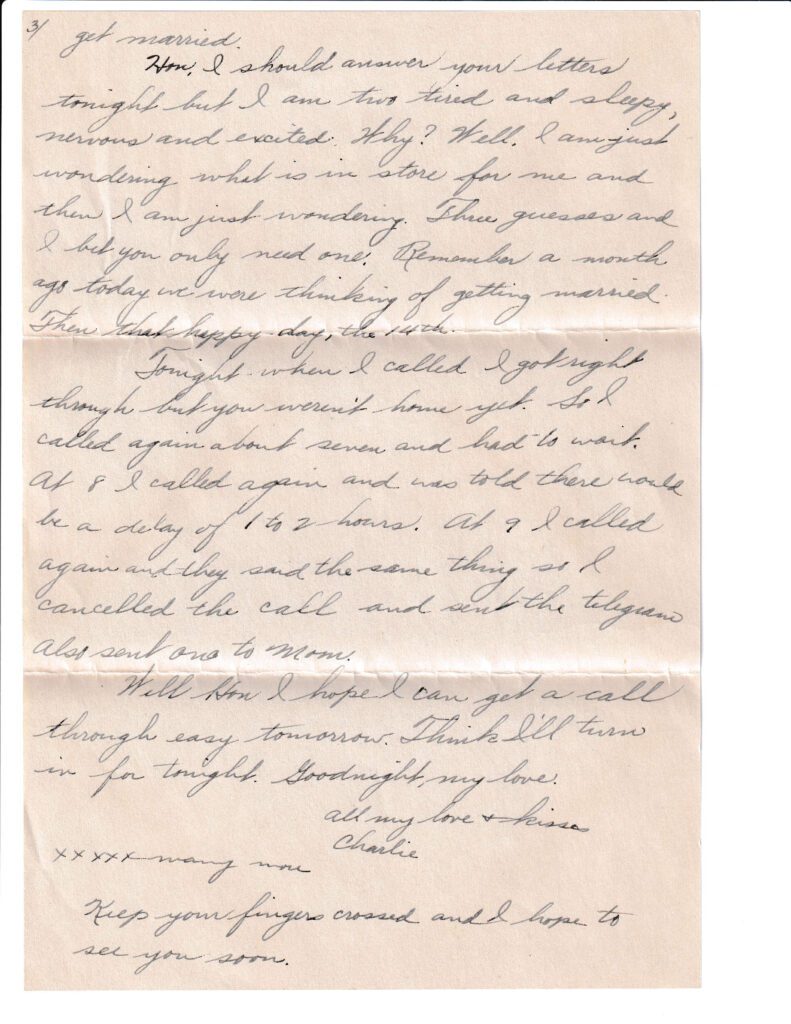 3/
get married.
Hon, I should answer your letters
tonight but I am two tired and sleepy,
nervous and excited. Why? Well, I am just
wondering what is in store for me and
then I am just wondering. Three guesses and
I bet you only need one! Remember a month
ago today we were thinking of getting married.
Then that happy day, the 14th.
Tonight when I called I got right
through but you weren't home yet. So I
called again about seven and had to wait.
At 8 I called again and was told there would
be a delay of 1 to 2 hours. At 9 I called
again and they said the same thing so I
cancelled the call and sent the telegram
also sent one to Mom.
Well Hon I hope I can get a call
through easy tomorrow. Think I'll turn
in for tonight. Goodnight, my love.
All my love + kisses
Charlie
xxxxx many more
Keep your fingers crossed and I hope to
see you soon.